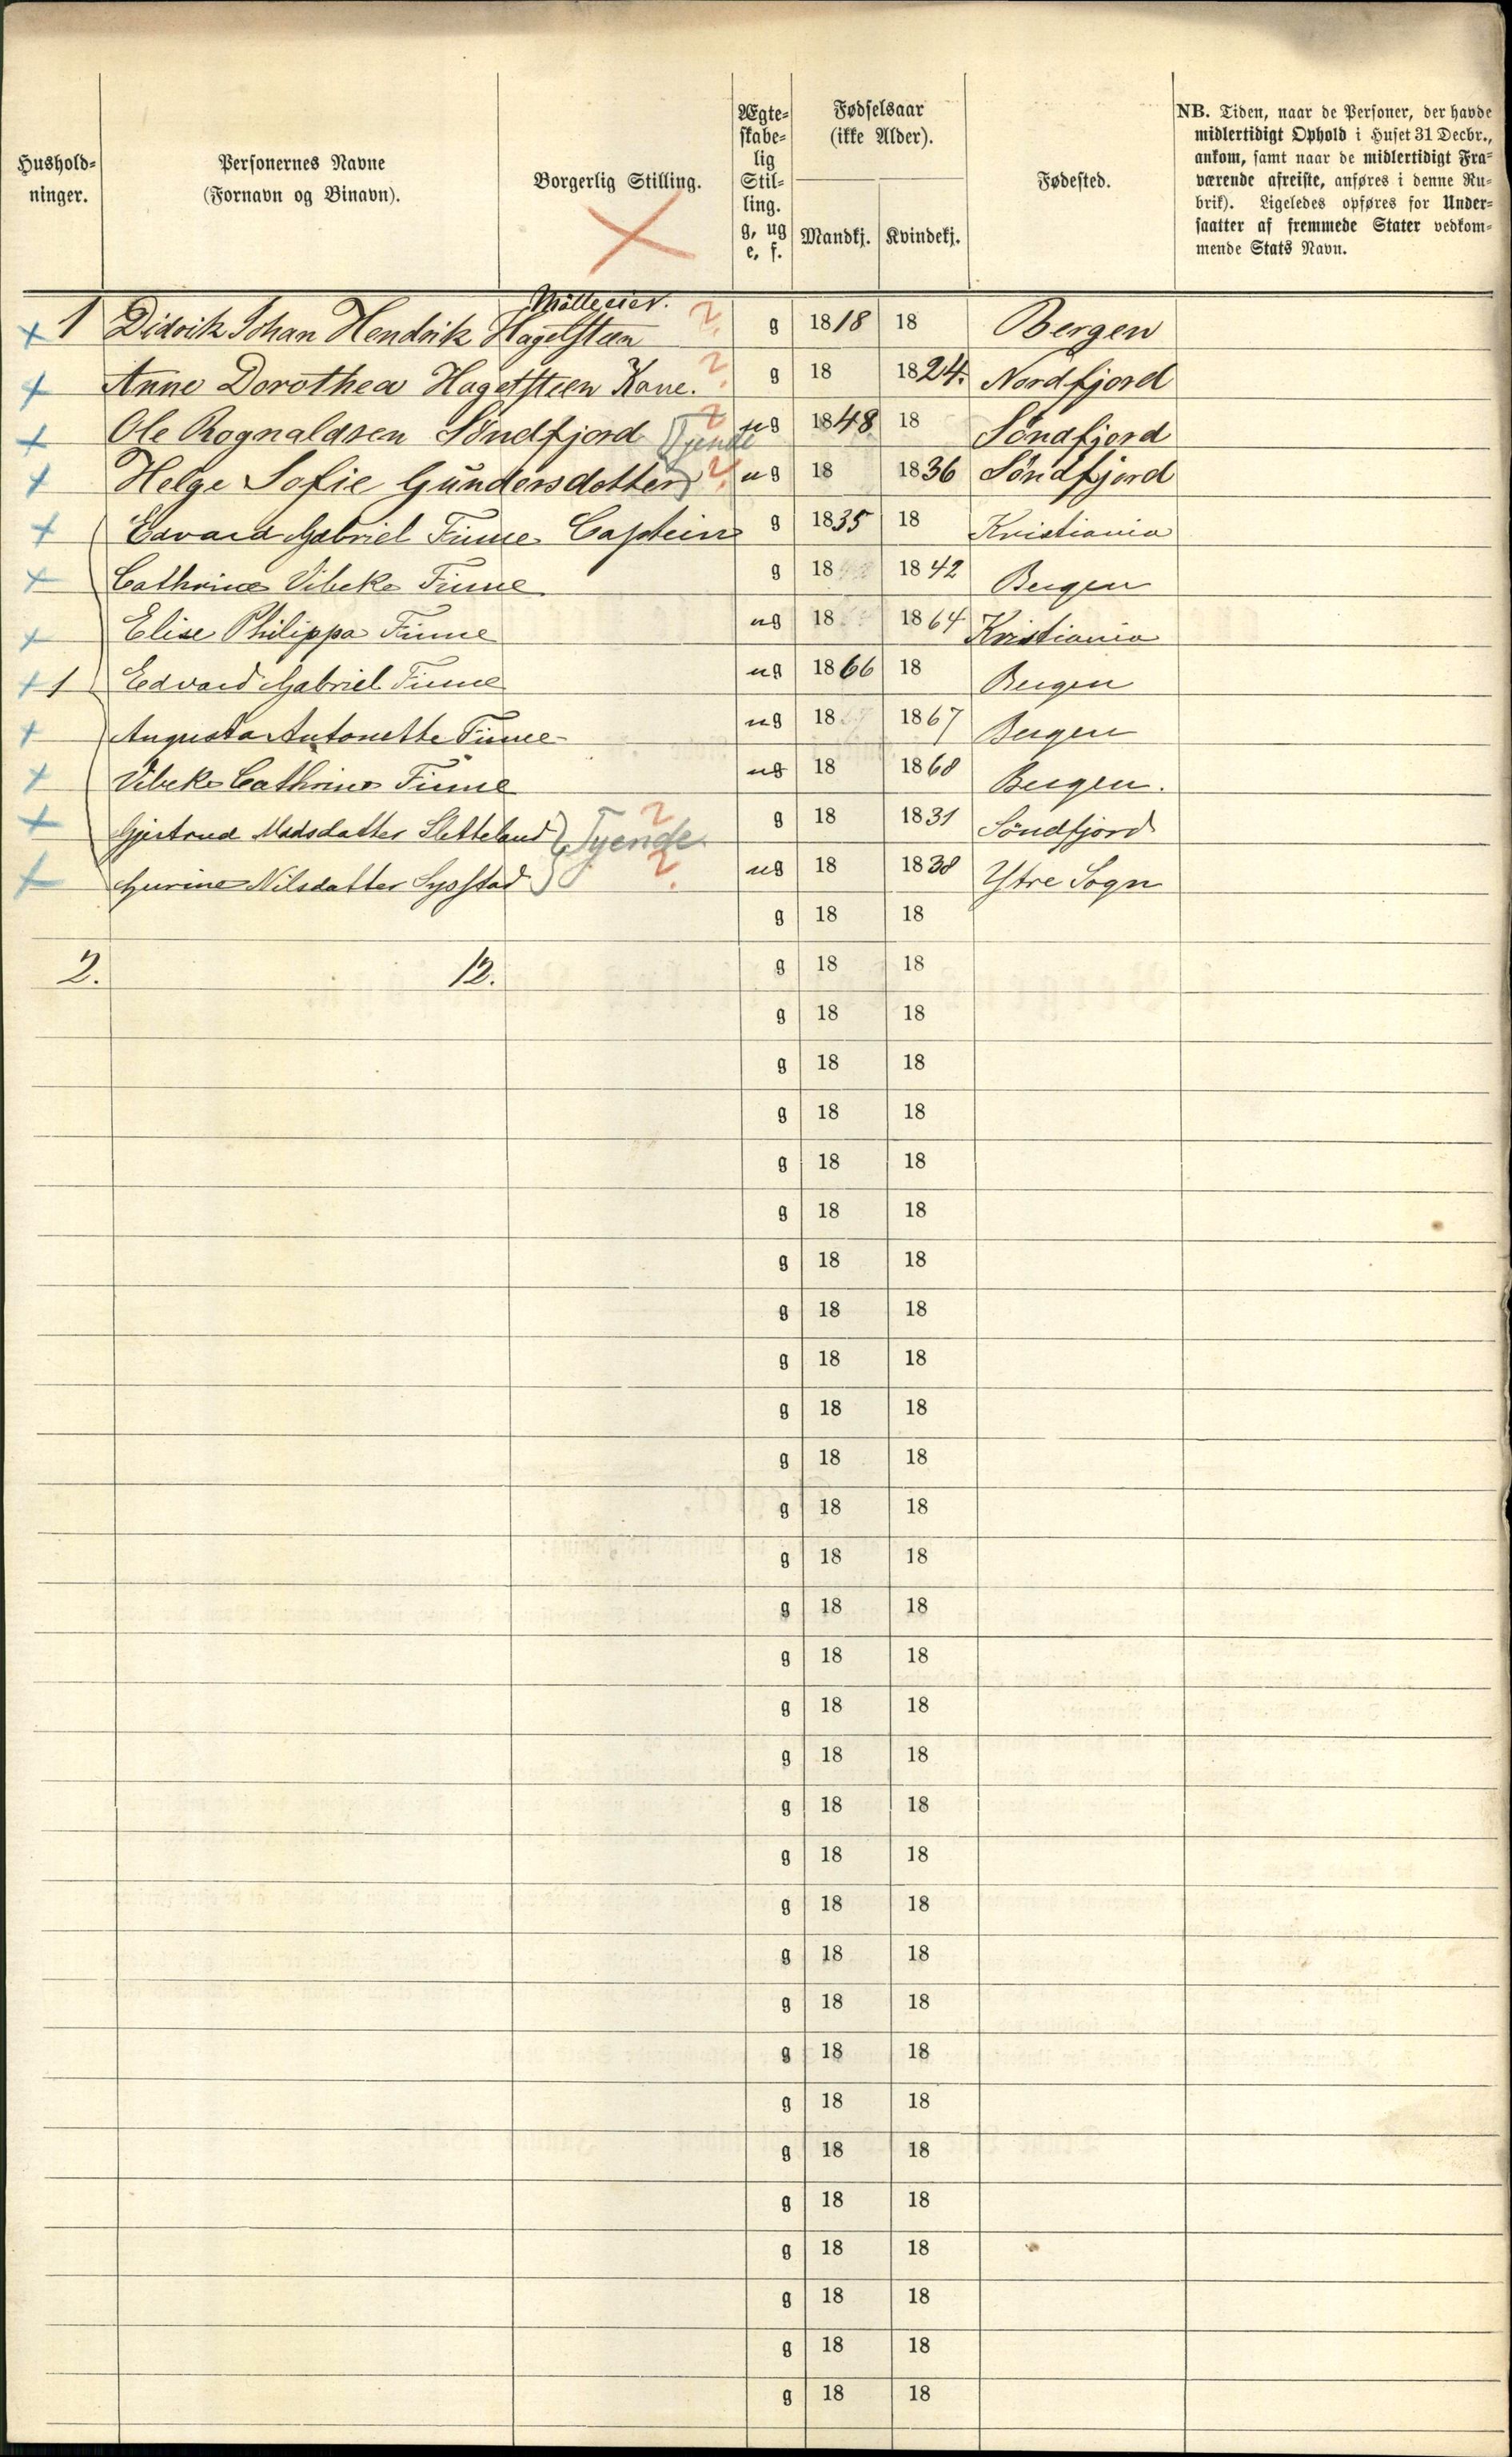 Hushold-
ninger.
Personernes Navne
(Fornavn og Binavn).
Borgerlig Stilling.
Ægte-
skabe-
lig
Stil-
ling.
g, ug
e, f.
Fødselsaar
(ikke Alder).
Mandkj.
Kvindekj.
Fødested.
NB. Tiden, naar de Personer, der havde
midlertidigt Ophold i Huset 31 Decbr.,
ankom, samt naar de midlertidigt Fra-
værende afreiste, anføres i denne Ru-
brik). Ligeledes opføres for Under-
saatter af fremmede Stater vedkom-
mende Stats Navn.
Mølleeier.
1 Didrik Johan Hendrik Hagelsteen g 1818 18 Bergen
Anne Dorothea Hagelsteen Kone. g 18 1824. Nordfjord
Ole Rognaldsen Söndfjord Tyende ug 1848 18 Söndfjord
Helge Sofie Gundersdotter ug 18 1836 Söndfjord
Edvard Gabriel Finne Captein g 1835 18 Kristiania
Cathrine Vibeke Finne g 18 1842 Bergen
Elise Philippa Finne ug 18 1864 Kristiania
1 Edvard Gabriel Finne ug 1866 18 Bergen
Augusta Antonette Finne ug 18 1867 Bergen
Vibeke Cathrine Finne ug 18 1868 Bergen.
Gjertrud Madsdatter Sletteland Tyende g 18 1831 Söndfjord
Gurine Nilsdatter ug 18 1838 Ytre Sogn
g 18 18
2. 12. g 18 18
g 18 18
g 18 18
g 18 18
g 18 18
g 18 18
g 18 18
g 18 18
g 18 18
g 18 18
g 18 18
g 18 18
g 18 18
g 18 18
g 18 18
g 18 18
g 18 18
g 18 18
g 18 18
g 18 18
g 18 18
g 18 18
g 18 18
g 18 18
g 18 18
g 18 18
g 18 18
g 18 18
g 18 18
g 18 18